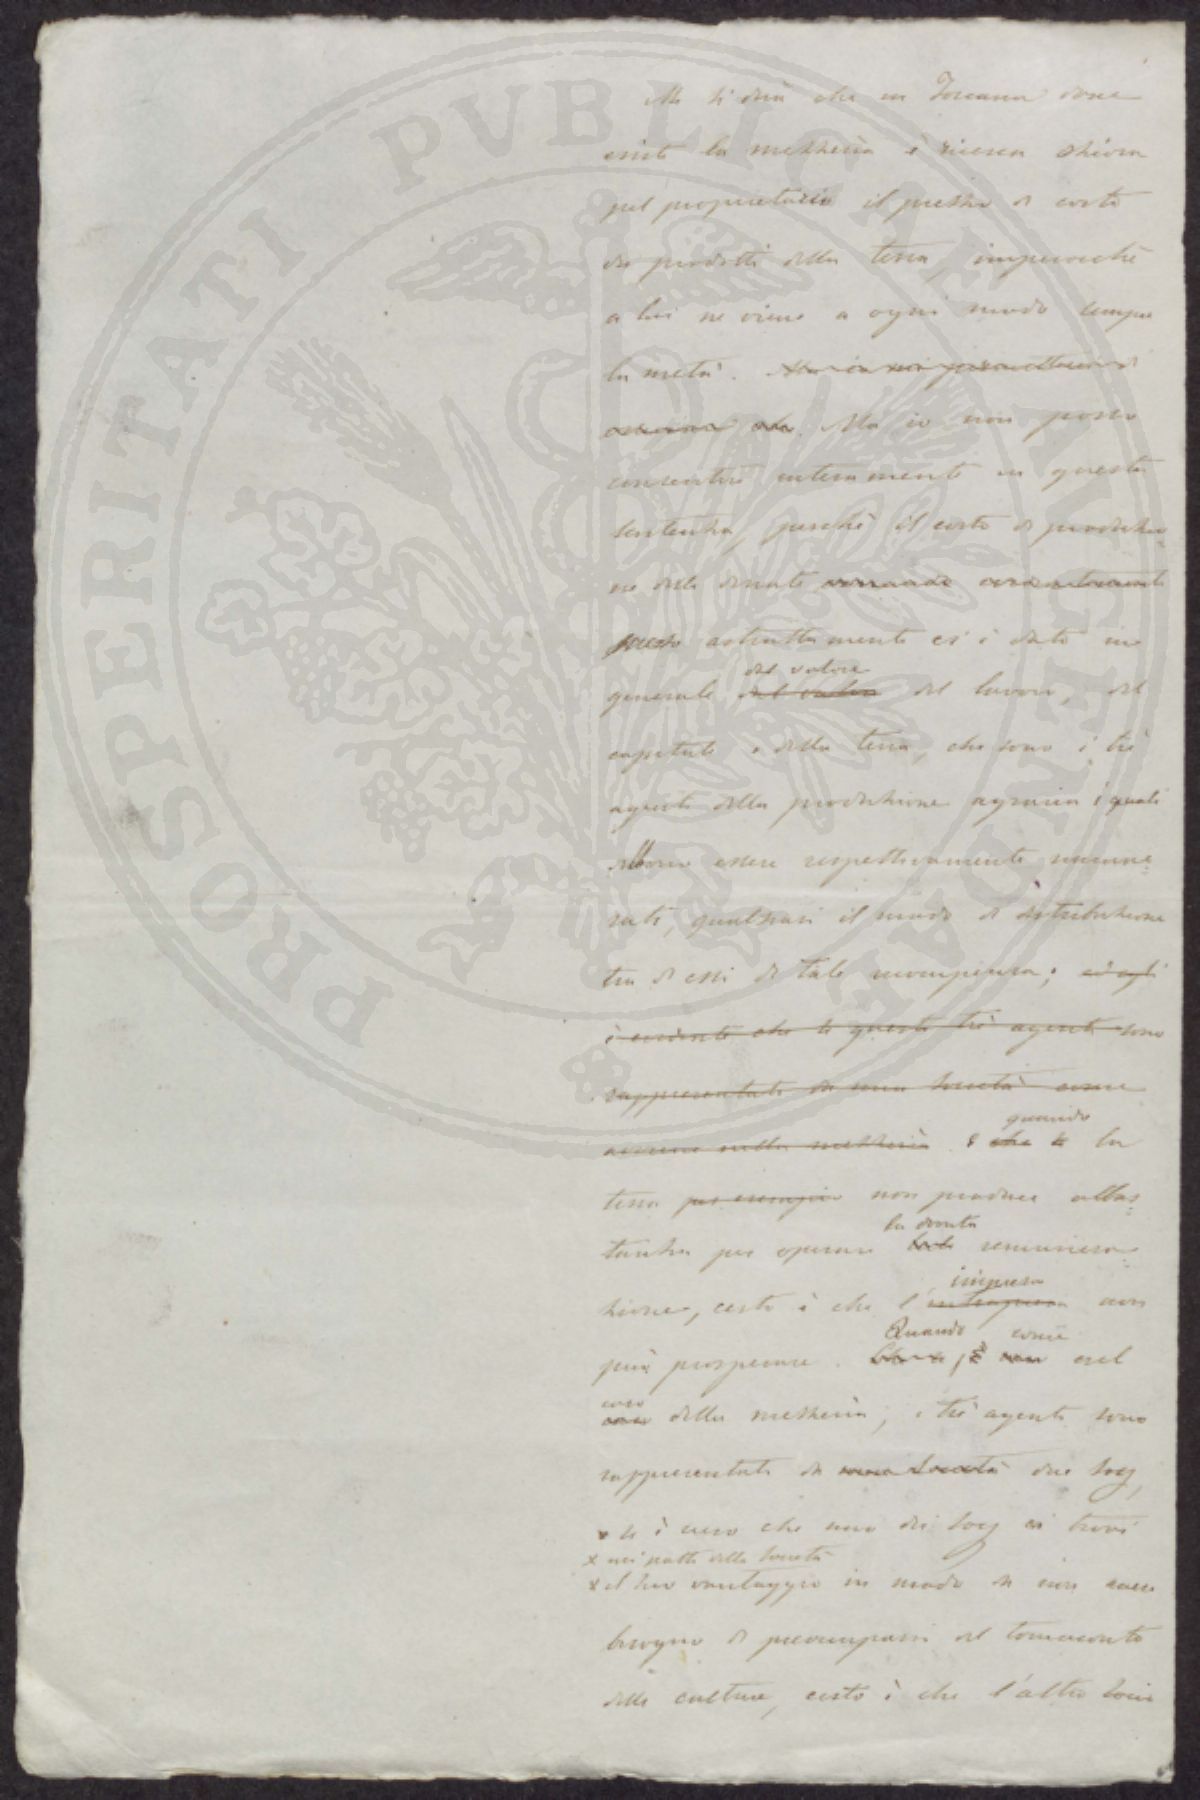 Mi si dirà che in Toscana dove
esiste la mezzeria è ricerca oziosa
pel proprietario il prezzo di costo
dei prodotti della terra, imperocchè
a lui ne viene a ogni modo sempre
la metà.
Ma io non posso
consentire interamente in questa
sentenza, perchè il costo di produzio=
ne delle derrate
preso astrattamente ci è dato in
generale del valore del lavoro, del
capitale e della terra, che sono i tre
agenti della produzione agraria i quali
debbono essere respettivamente rimune=
rati, qualsiasi il modo di distribuzione
tra di essi di tale ricompensa; ed egli
è evidente che se questi tre agenti sono
rappresentati da una Società come
avviene nella mezzeria. E che se quando la
terra per esempio non produce abbas=
tanza per operare tale la dovuta remunera=
zione, certo è che l'intrapresa impresa non
può prosperare. Quando come nel
caso della mezzeria, i tre agenti sono
rappresentati da una Società due Socj,
x se è vero che uno dei Socj si trovi
x nei patti della Società
x il suo vantaggio in modo da non avere
bisogno di preoccuparsi del tornaconto
delle culture, certo è che l'altro Socio
PROSPERITATI PVBLICAE AVGENDAE